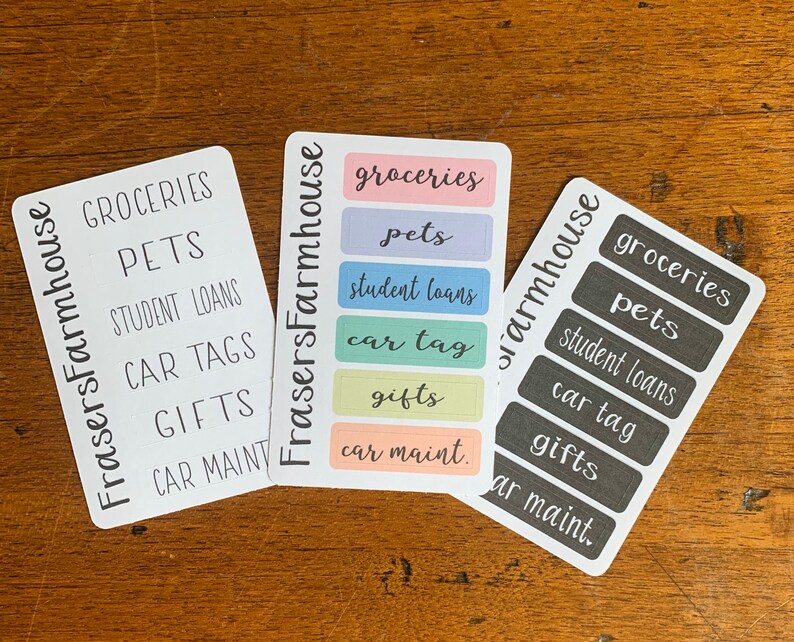 FrasersFarmhouse
GROCERIES
PETS
STUDENT LOANS
CAR TAGS
GIFTS
CAR MAINT
FrasersFarmhouse
groceries
pets
student loans
car tag
gifts
car maint.
sFarmhouse
groceries
pets
student loans
car tag
gifts
ar maint.